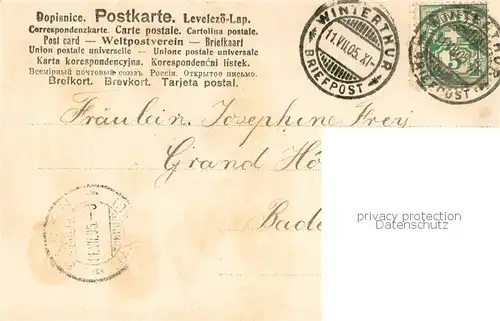 Dopisnice. Postkarte. Levelező-Lap.
Correspondenzkarte. Carte postale. Cartolina postale.
Post card — Weltpostverein — Briefkaart
Union postale universelle — Unione postale universale
Karta korespondencyjna. Korespondenční lístek.
Всемірный почтовый союзъ. Россія. Открытое письмо.
Brefkort. Brevkort. Tarjeta postal.
WINTERTHUR
11.VII.05.XI-
BRIEFPOST
5
Fräulein Josephine Frey
Grand Hô
Bade
11.VII.05.-3
privacy protection
watermark